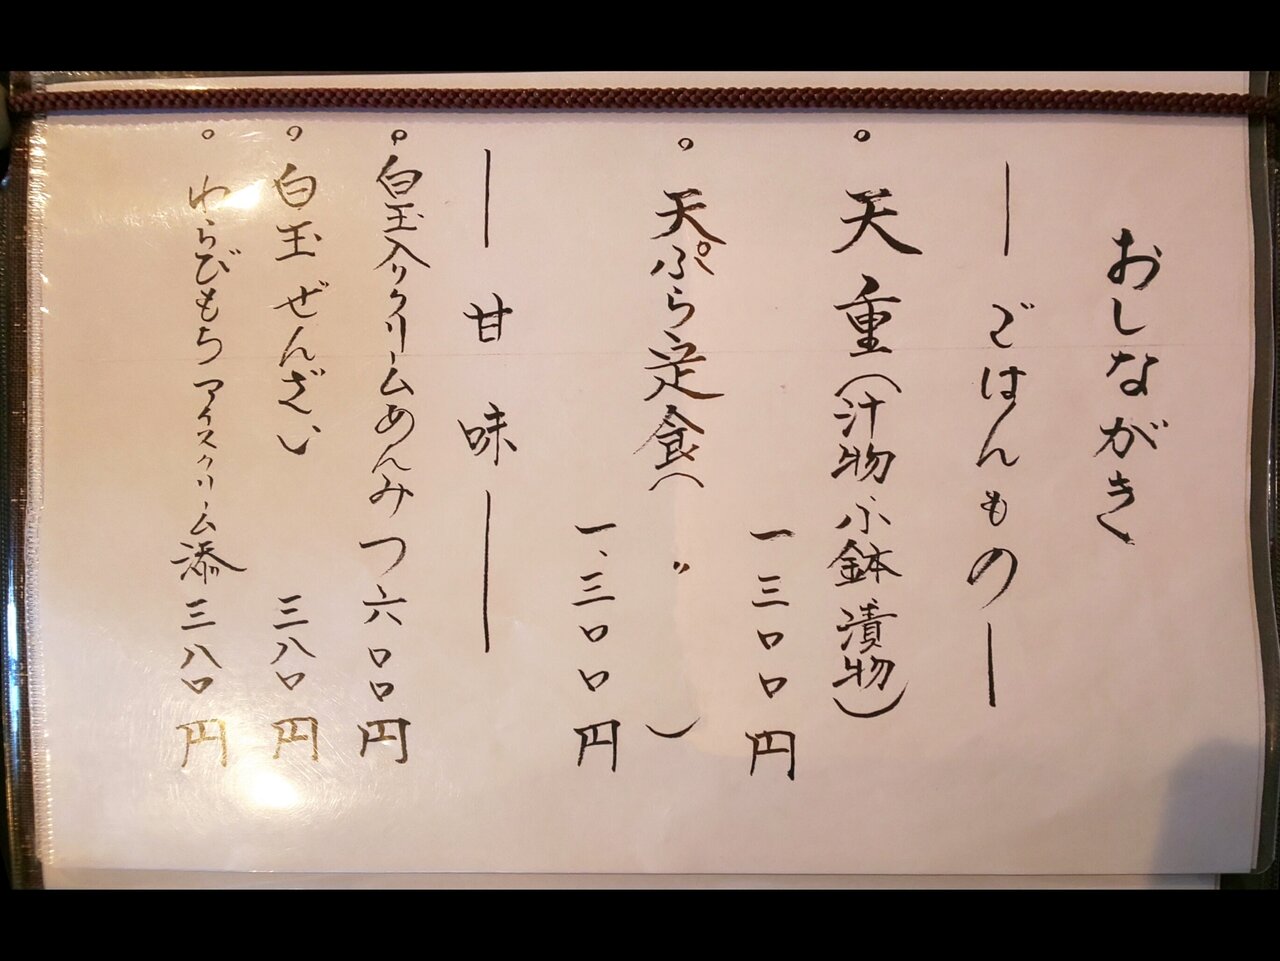 おしながき
― ごはんもの ―
。天重(汁物 小鉢 漬物)
一三〇〇円
。天ぷら定食( 〃 )
一、三〇〇円
― 甘味 ―
。白玉入りクリームあんみつ 六〇〇円
。白玉ぜんざい 三八〇円
。わらびもちアイスクリーム添 三八〇円